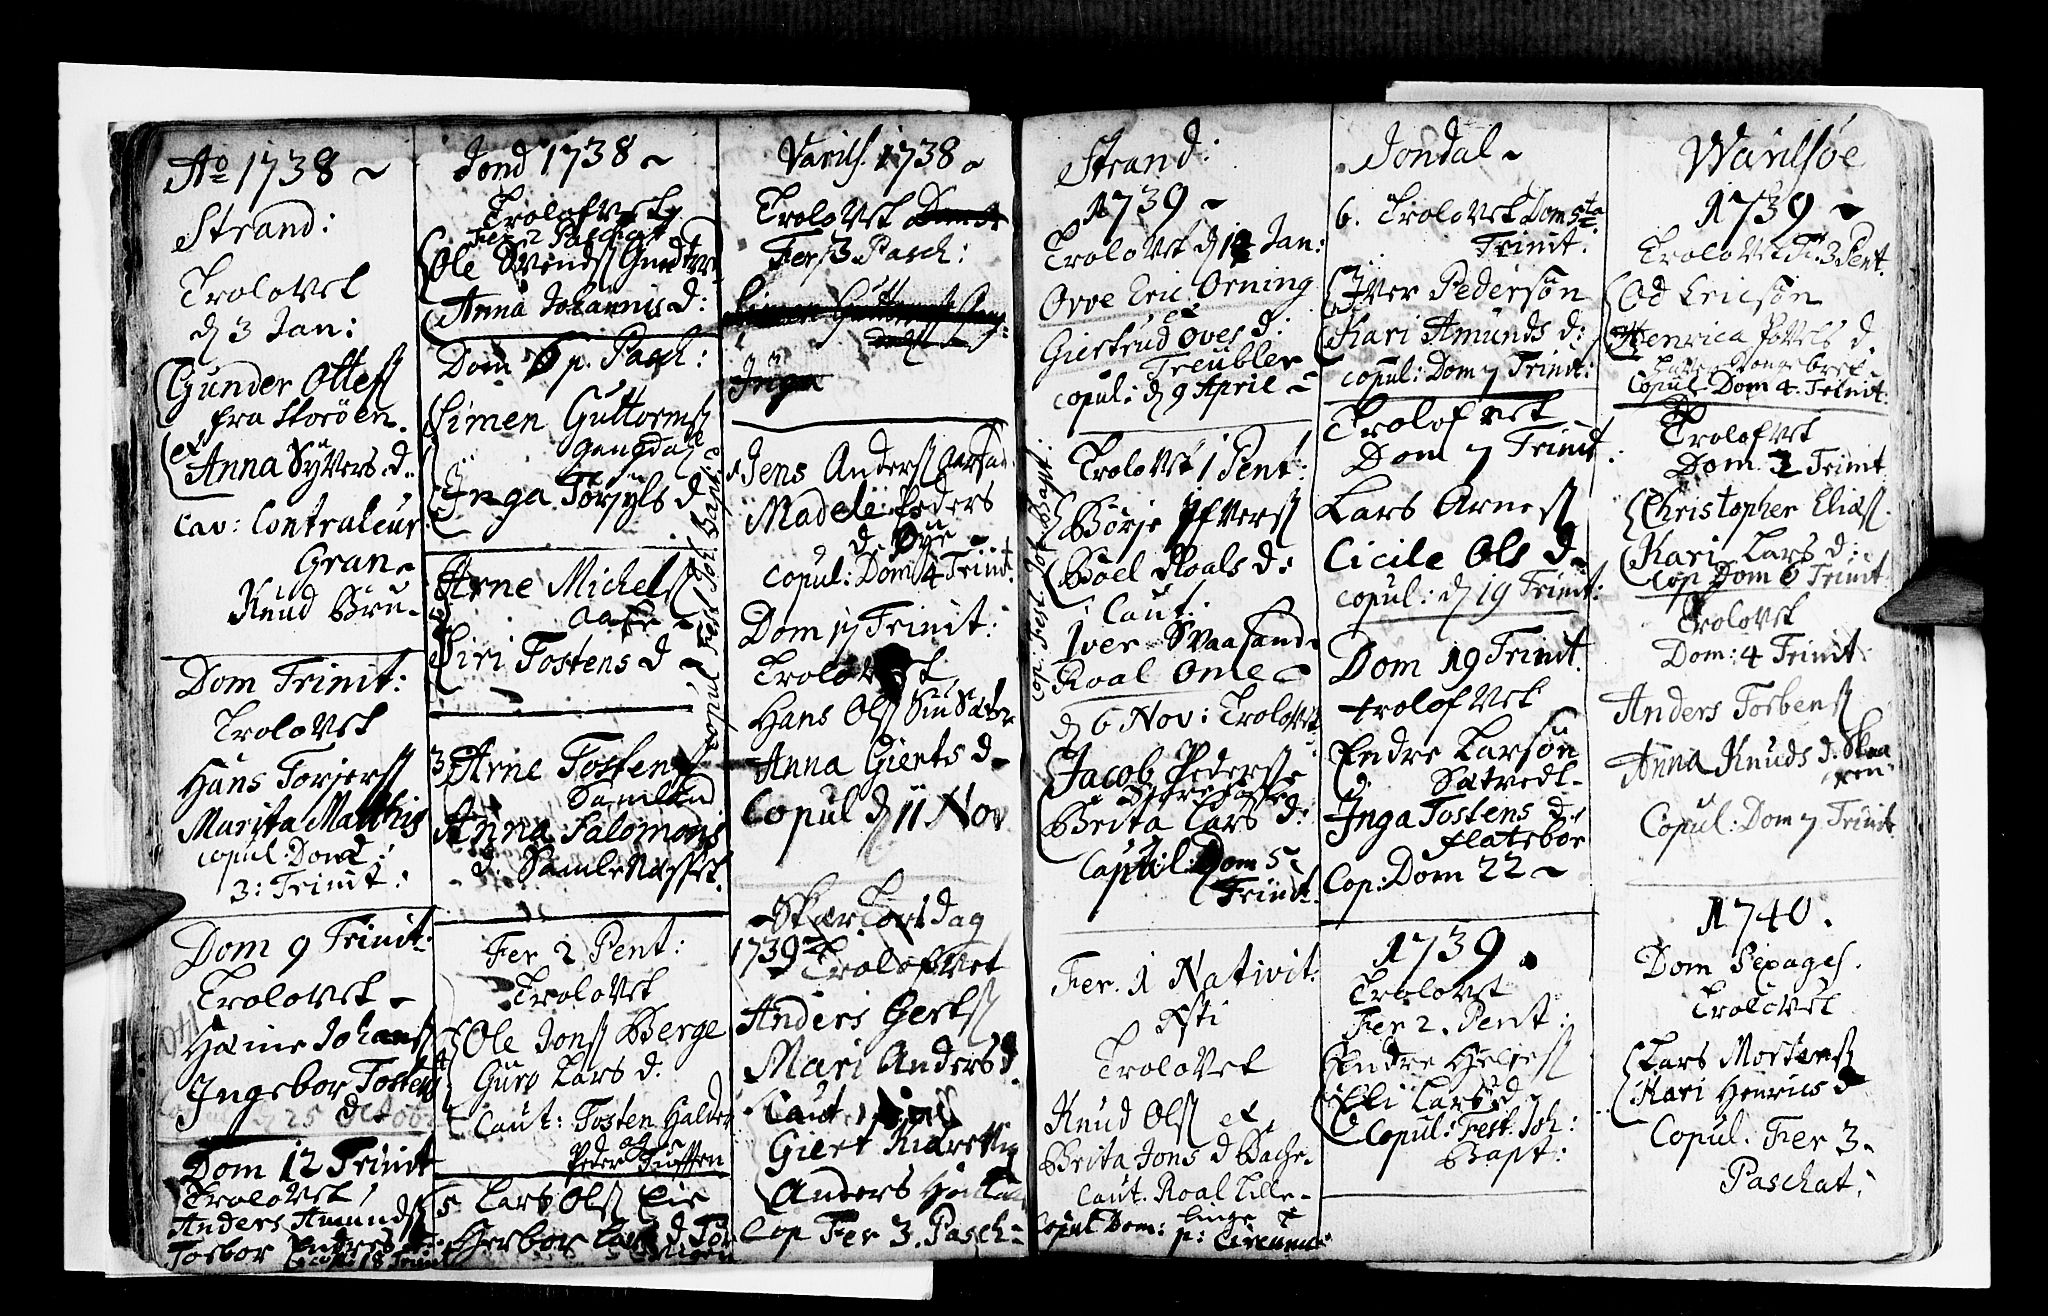 Ao 1738 ~
Strand:
Trolovet
d 3 Jan:
Gunder Ottes
fra Storöen.
ex
Anna Syvers d..
Cav: Contraleur
Gran
Knud Bru
Dom Trinit:
Trolovet
Hans Torjers
Marita Matthis
Copul: Dom
3: Trinit:
Dom 9 Trinit:
Trolovet
Johans
Ingebor Tostens
d
25 October
Dom 12 Trinit
Trolovet
Anders Amunds
Torbor Endres d
Jond 1738 ~
Trolofvet
Fer 2 Paschat
Ole Svends
Anna Johannis d:
Dom 6 p. Pasch:
Simen Guttorms
Gangdal
Inga Torjyls d
Arne Michels
Siri Tostens d
Copul Fest Joh: Bapt:
3 Arne Tostens
Samland
Anna Salomons
d. Samlenæsset.
Fer 2 Pent:
Trolovet
Ole Jons Berge
Guro Lars d.
Caut: Tosten Halder
og
Peder
5 Lars Ols Eie
Herbor Lars d
Varils. 1738
Trolovet
Fer 3 Pasch:
Inga
Jens Anders
Madele Peders
d. Øye
Copul: Dom 4 Trinit.
Dom 17 Trinit:
Trolovet
Hans Ols
Anna Gierts d
Copul d 11 Nov
Skær Torsdag
1739
Trolofvet
Anders Gerts
Mari Anders d.
Caut
Giert
Anders
Cop Fer 3. Pasch
Strand:
1739 ~
Trolovet d 12 Jan:
Ovve Eric Orning
ex
Giertrud Oves d:
Treubler
Copul: d 9 April
Trolovet 1 Pent:
Børje Ifvers
Boel Roals d:
Caut:
Iver Svaasand
Roal Ome
Cop. Fest. Joh. Bapt:
d 6 Nov: Trolovet
Jacob Peders
Brita Lars d:
Copul: Dom 5
Trinit.
Fer. 1 Nativit:
Xsti
Trolovet
Knud Ols ex
Brita Jons d Bache
Caut. Roal Lille
linge
Copul Dom: p: Circumc
Jondal ~
6. Trolovet Dom 5ta
Trinit.
Iver Pedersøn
Kari Amunds d:
Copul: Dom 7 Trinit:
Trolofvet
Dom 7 Trinit.
Lars Arnes
Cicile Ols d
Copul: d 19 Trinit:
Dom 19 Trinit.
trolofvet
Endre Larsøn
Sætvedt
Inga Tostens d.
Flatebøe
Cop: Dom 22 ~
1739.
Trolovet
Fer 2. Pent:
Endre Helges
Eli Lars d
Copul: Fest. Joh:
Bapt:
Warilsøe
1739 ~
Trolovet 3 Pent.
Od Ericsøn
Henrica Povels d.
Copul Dom 4. Trinit:
Trolofvet
Dom. 2 Trinit
Christopher Elias
Kari Lars d:
Cop Dom 6 Trinit
Trolovet
Dom: 4 Trinit:
Anders Torbens
Anna Knuds d.
Copul: Dom 7 Trinit
1740.
Dom Sexages.
Trolovet
Lars Mortens
Kari Henrics d
Copul. Fer 3
Paschat: